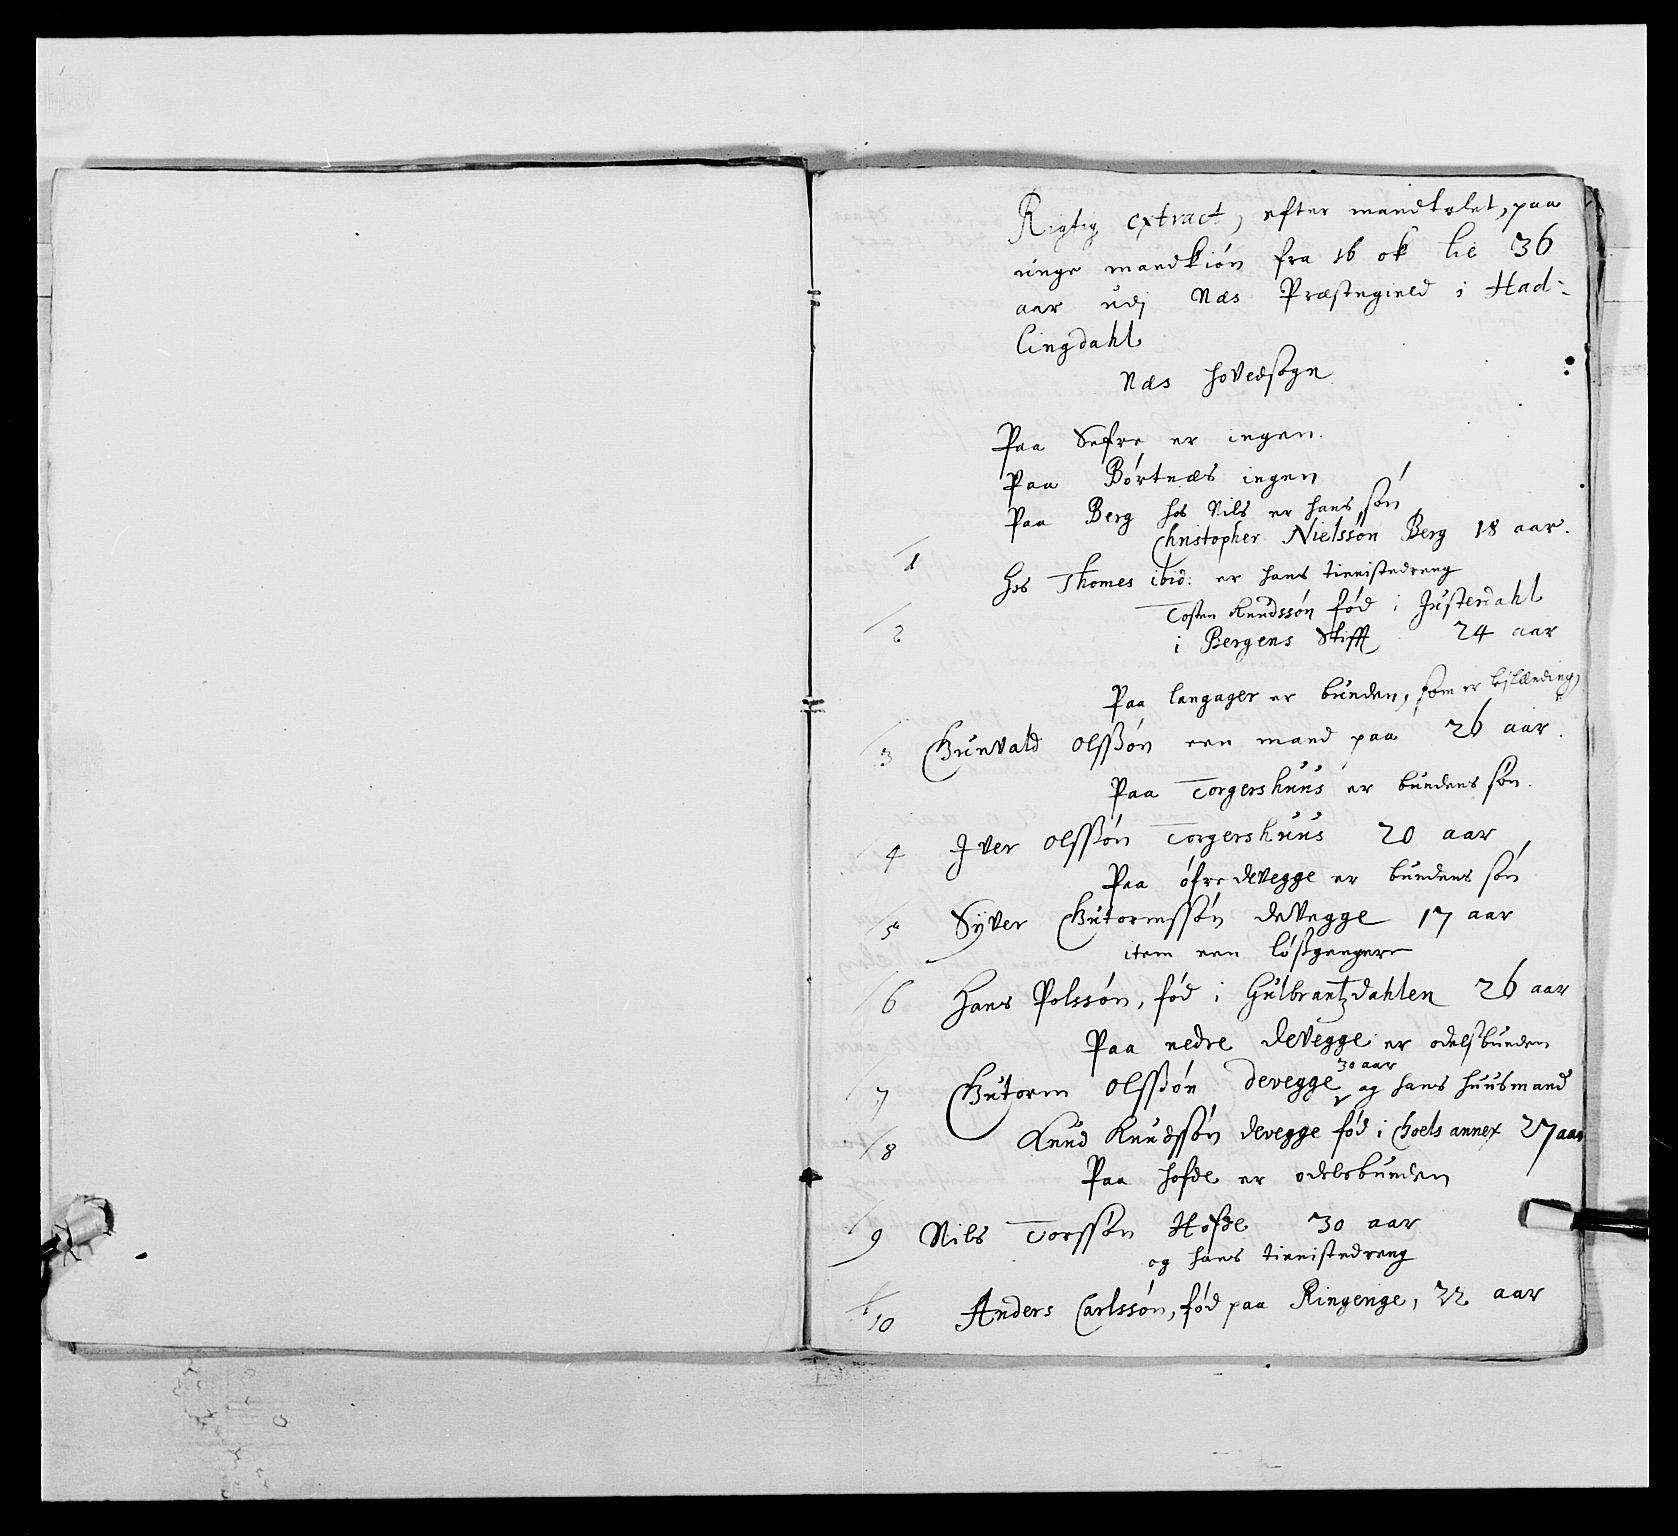 Rigtig extract, efter mandtalet, paa
unge mandkiøn fra 16 ok til 36
aar udj Næs Præstegield i Had-
lingdahl
Næs hovedsogn
Paa Sefre er ingen.
Paa Børtnæs ingen
Paa Berg hos Nils er hans søn
1 Christopher Nielssøn Berg 18 aar.
Hos Thomes ibid: er hans tienistedreng
2 Tosten Knudssøn fød i Justerdahl
i Bergens Stifft 24 aar
Paa langager er bunden, som er
3 Gunvald Olssøn een mand paa 26 aar.
Paa Torgershuus er bundens søn.
4 Iver Olssøn Torgershuus 20 aar
Paa øfre devegge er bundens søn
5 Syver Gutormssøn devegge 17 aar
item een løsgengere
6 Hans Polssøn, fød i Gulbrantzdahlen 26 aar
Paa nedre devegge er odelsbunden
7 Gutorm Olssøn devegge 30 aar og hans huusmand
8 Knud Knudssøn devegge fød i Hoels annex 27 aar
Paa hofde er odelsbunden
9 Nils Torssøn Hofde 30 aar
og hans tienistedreng
10 Anders Carlssøn, fød paa Ringerige, 22 aar